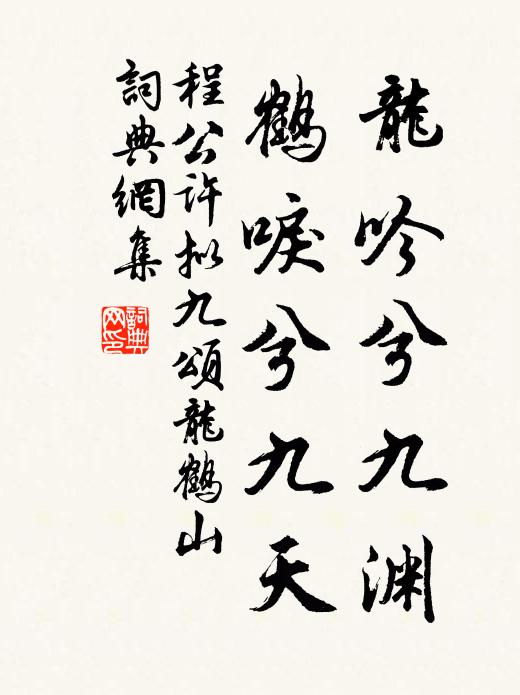 龍吟兮九渊
鶴唳兮九天
程公许拟九頌龍鶴山
詞典網集
詞典网印